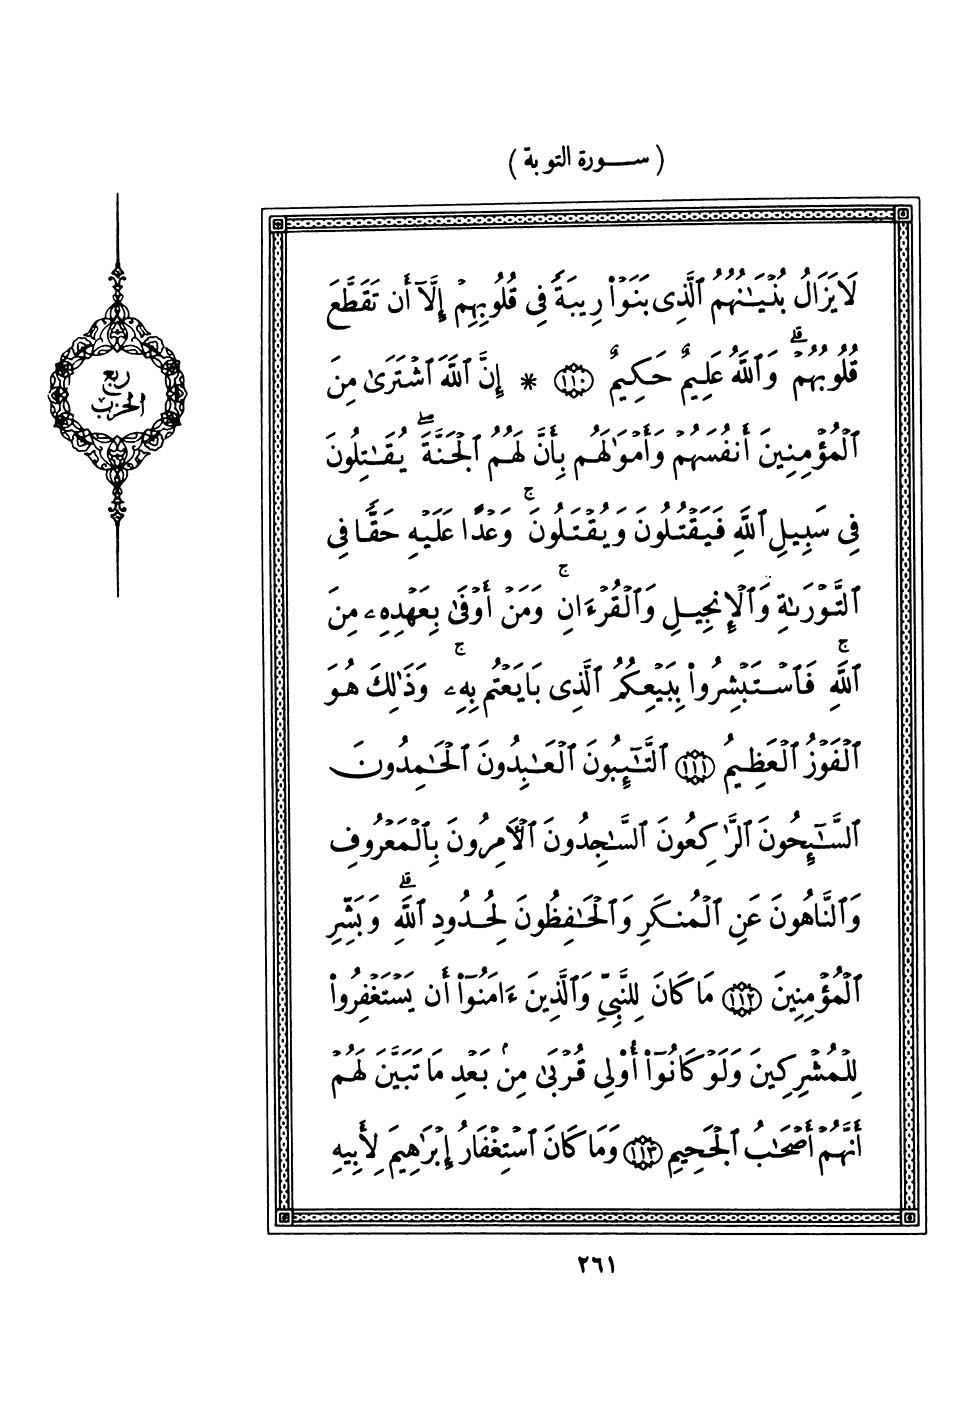 ( ســـورة التوبة )
لَا يَزَالُ بُنْيَـٰنُهُمُ ٱلَّذِى بَنَوْا۟ رِيبَةً فِى قُلُوبِهِمْ إِلَّآ أَن تَقَطَّعَ
قُلُوبُهُمْ ۗ وَٱللَّهُ عَلِيمٌ حَكِيمٌ ﴿١١٠﴾ * إِنَّ ٱللَّهَ ٱشْتَرَىٰ مِنَ
ٱلْمُؤْمِنِينَ أَنفُسَهُمْ وَأَمْوَٰلَهُم بِأَنَّ لَهُمُ ٱلْجَنَّةَ ۖ يُقَـٰتِلُونَ
فِى سَبِيلِ ٱللَّهِ فَيَقْتُلُونَ وَيُقْتَلُونَ ۚ وَعْدًا عَلَيْهِ حَقًّا فِى
ٱلتَّوْرَىٰةِ وَٱلْإِنجِيلِ وَٱلْقُرْءَانِ ۚ وَمَنْ أَوْفَىٰ بِعَهْدِهِۦ مِنَ
ٱللَّهِ ۚ فَٱسْتَبْشِرُوا۟ بِبَيْعِكُمُ ٱلَّذِى بَايَعْتُم بِهِۦ ۚ وَذَٰلِكَ هُوَ
ٱلْفَوْزُ ٱلْعَظِيمُ ﴿١١١﴾ ٱلتَّـٰٓئِبُونَ ٱلْعَـٰبِدُونَ ٱلْحَـٰمِدُونَ
ٱلسَّـٰٓئِحُونَ ٱلرَّٰكِعُونَ ٱلسَّـٰجِدُونَ ٱلْـَٔامِرُونَ بِٱلْمَعْرُوفِ
وَٱلنَّاهُونَ عَنِ ٱلْمُنكَرِ وَٱلْحَـٰفِظُونَ لِحُدُودِ ٱللَّهِ ۗ وَبَشِّرِ
ٱلْمُؤْمِنِينَ ﴿١١٢﴾ مَا كَانَ لِلنَّبِىِّ وَٱلَّذِينَ ءَامَنُوٓا۟ أَن يَسْتَغْفِرُوا۟
لِلْمُشْرِكِينَ وَلَوْ كَانُوٓا۟ أُو۟لِى قُرْبَىٰ مِنۢ بَعْدِ مَا تَبَيَّنَ لَهُمْ
أَنَّهُمْ أَصْحَـٰبُ ٱلْجَحِيمِ ﴿١١٣﴾ وَمَا كَانَ ٱسْتِغْفَارُ إِبْرَٰهِيمَ لِأَبِيهِ
ربع
الحزب
٢٦١